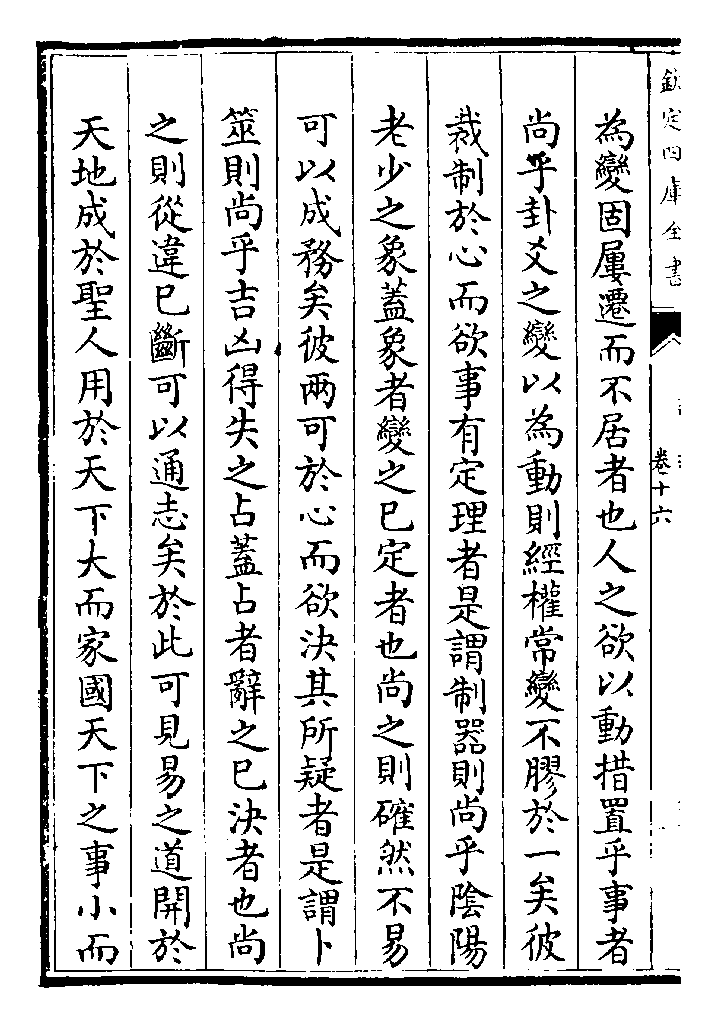 欽定四庫全書
卷十六
為變固屢遷而不居者也人之欲以動措置乎事者
尚乎卦爻之變以為動則經權常變不膠於一矣彼
裁制於心而欲事有定理者是謂制器則尚乎陰陽
老少之象蓋象者變之已定者也尚之則確然不易
可以成務矣彼兩可於心而欲決其所疑者是謂卜
筮則尚乎吉凶得失之占蓋占者辭之已決者也尚
之則從違已斷可以通志矣於此可見易之道開於
天地成於聖人用於天下大而家國天下之事小而